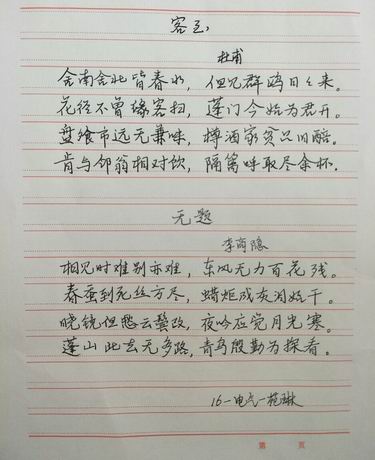 客至
杜甫
舍南舍北皆春水，但见群鸥日日来。
花径不曾缘客扫，蓬门今始为君开。
盘飧市远无兼味，樽酒家贫只旧醅。
肯与邻翁相对饮，隔篱呼取尽余杯。
无题
李商隐
相见时难别亦难，东风无力百花残。
春蚕到死丝方尽，蜡炬成灰泪始干。
晓镜但愁云鬓改，夜吟应觉月光寒。
蓬山此去无多路，青鸟殷勤为探看。
16一电气一范琳
第 页